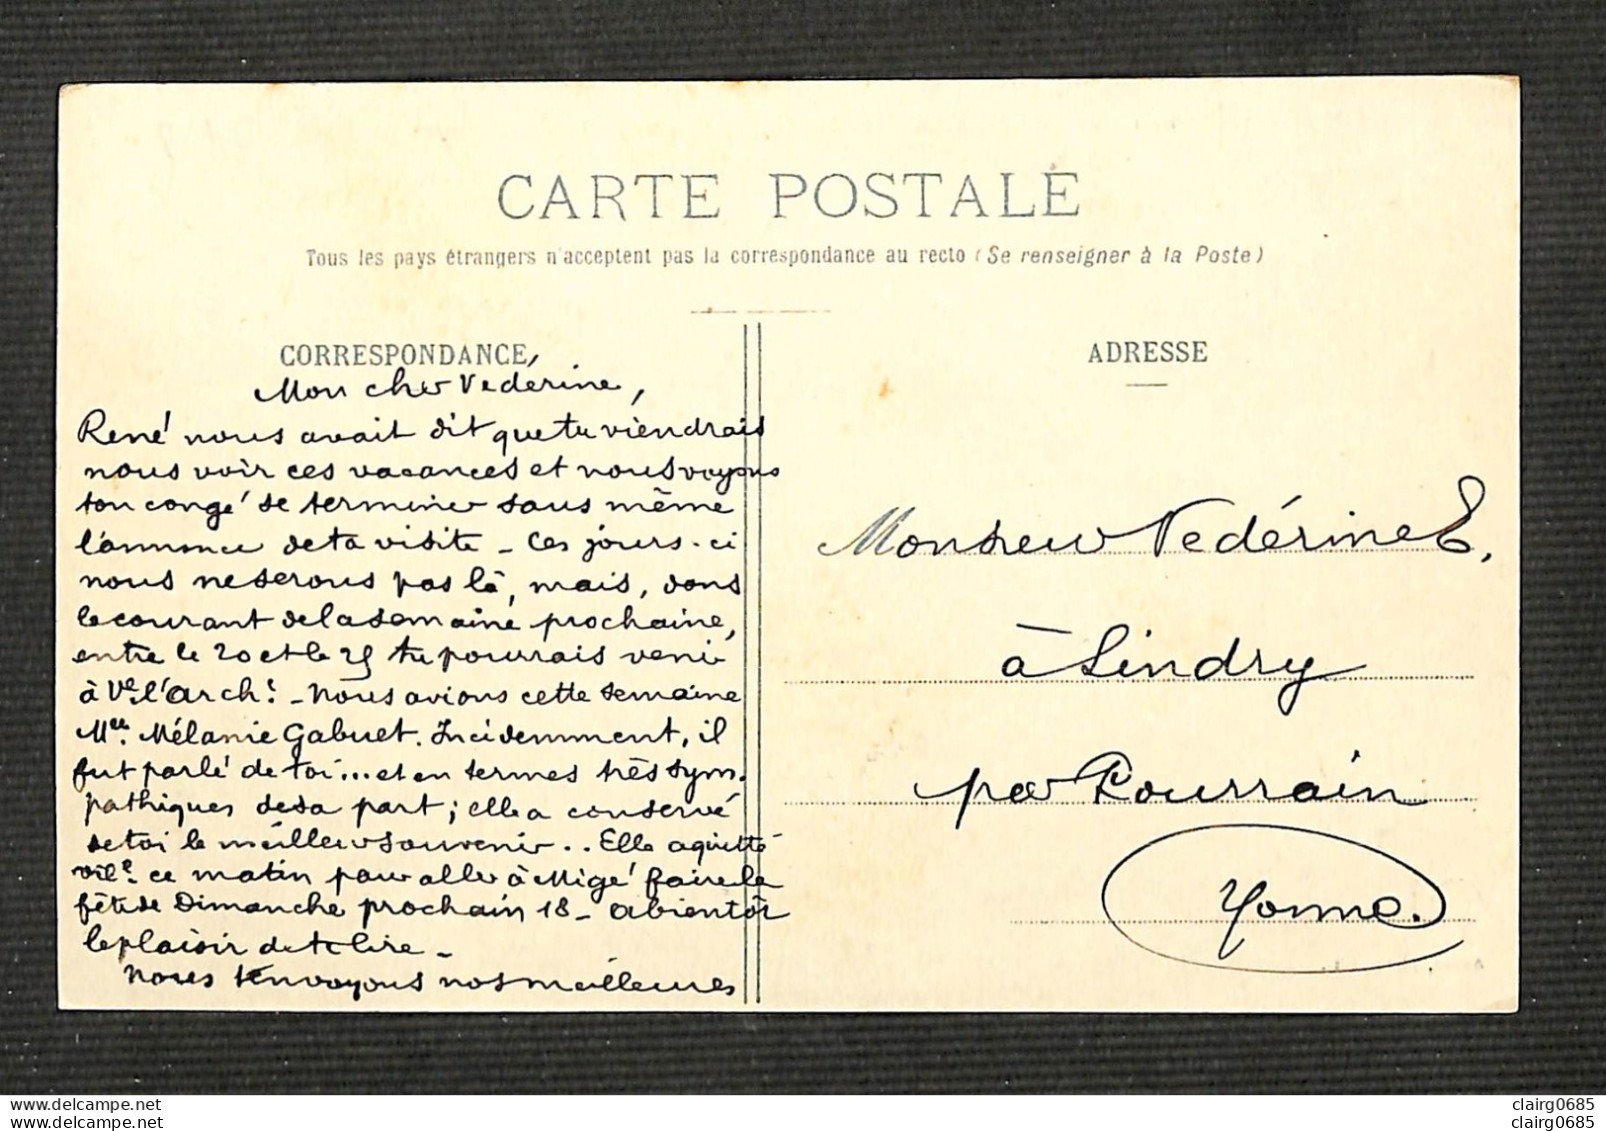 CARTE POSTALE
Tous les pays étrangers n'acceptent pas la correspondance au recto (Se renseigner à la Poste)
CORRESPONDANCE
Mon cher Vederine,
René nous avait dit que tu viendrais
nous voir ces vacances et nous voyons
ton congé se terminer sans même
l'annonce de ta visite - Ces jours-ci
nous ne serons pas là, mais, dans
le courant de la semaine prochaine,
entre le 20 et le 25 tu pourrais venir
à Ve. l'arch: - Nous avions cette semaine
Mlle. Mélanie Gabuet. Incidemment, il
fut parlé de toi... et en termes très sym-
pathiques de sa part; elle a conservé
de toi le meilleur souvenir.. Elle a quitté
ville. ce matin pour aller à Migé faire la
fête de Dimanche prochain 18 - A bientôt
le plaisir de te lire -
Nous t'envoyons nos meilleures
ADRESSE
Monsieur Vedérine E.
à Lindry
par Pourrain
Yonne.
clairg0685.delcampe.net
clairg0685.delcampe.net
clairg0685
clairg0685